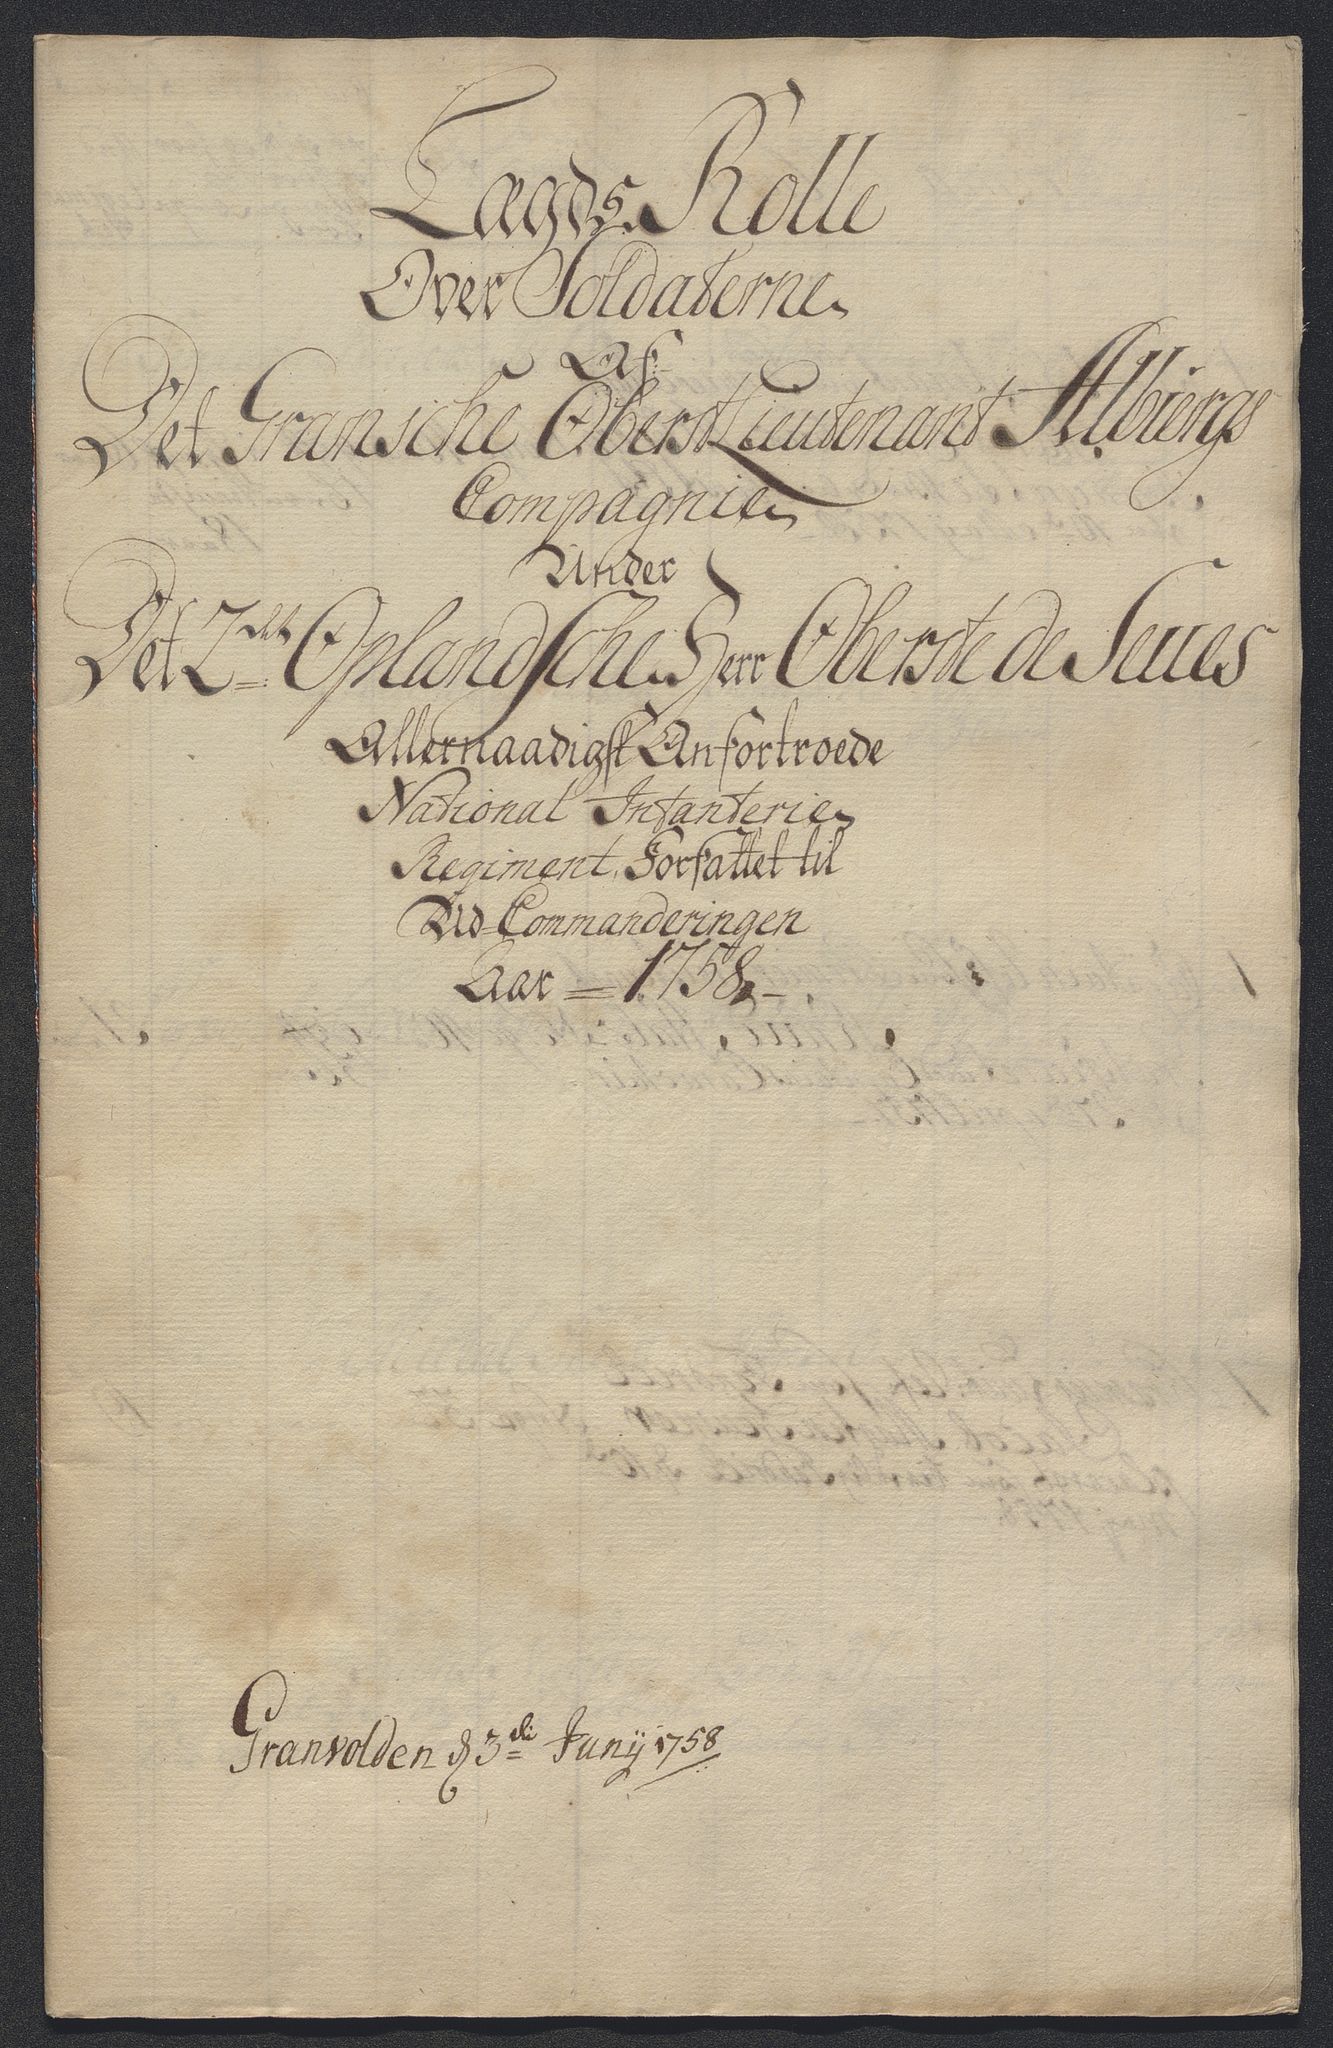 Lægds Rolle
Over Soldaterne
Af
Det Gransche Oberst Lieutenant Albiergs
Compagnie
Under
Det 2det Oplandsche Herr Oberste de Seues
Allernaadigst Anfortroede
National Infanterie
Regiment, Forfattet til
Ud-Commanderingen
Aar = 1758
Granvolden d 3die Junij 1758